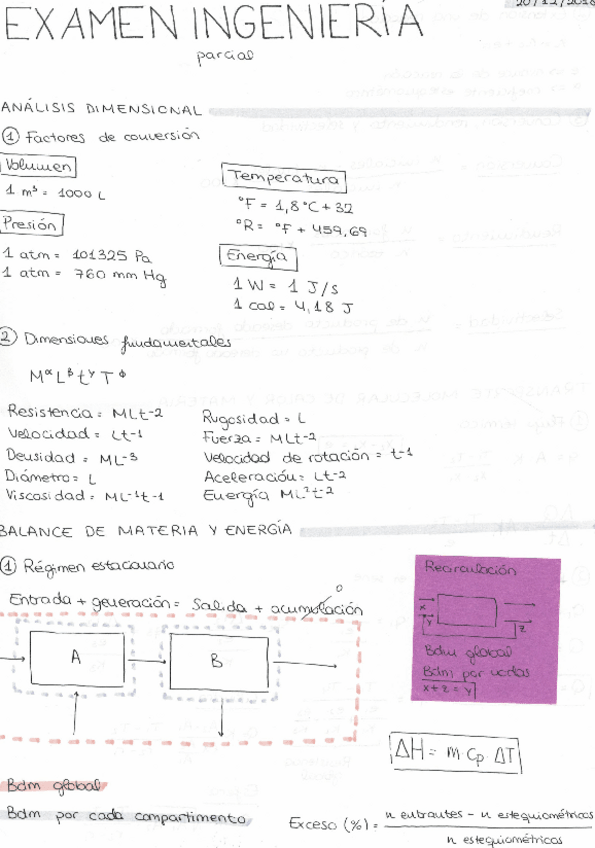 20/12/2018
EXAMEN INGENIERÍA
parcial
ANÁLISIS DIMENSIONAL
① Factores de conversión
Volumen
1 m³ = 1000 L
Presión
1 atm = 101325 Pa
1 atm = 760 mm Hg
Temperatura
°F = 1,8 °C + 32
°R = °F + 459,69
Energía
1 W = 1 J/s
1 cal = 4,18 J
② Dimensiones fundamentales
Mᵅ Lᵝ tᵞ Tᶲ
Resistencia = MLt-2
Velocidad = Lt-1
Densidad = ML-3
Diámetro = L
Viscosidad = ML-1t-1
Rugosidad = L
Fuerza = MLt-2
Velocidad de rotación = t-1
Aceleración = Lt-2
Energía ML²t-2
BALANCE DE MATERIA Y ENERGÍA
① Régimen estacionario
Entrada + generación = Salida + acumulación
0
A
B
Bdm global
Bdm por cada compartimento
Recirculación
x
y
z
Bdm global
Bdm por nodos
x + z = y
ΔH = m · Cp · ΔT
Exceso (%) = n entrantes - n estequiométricos
n estequiométricos